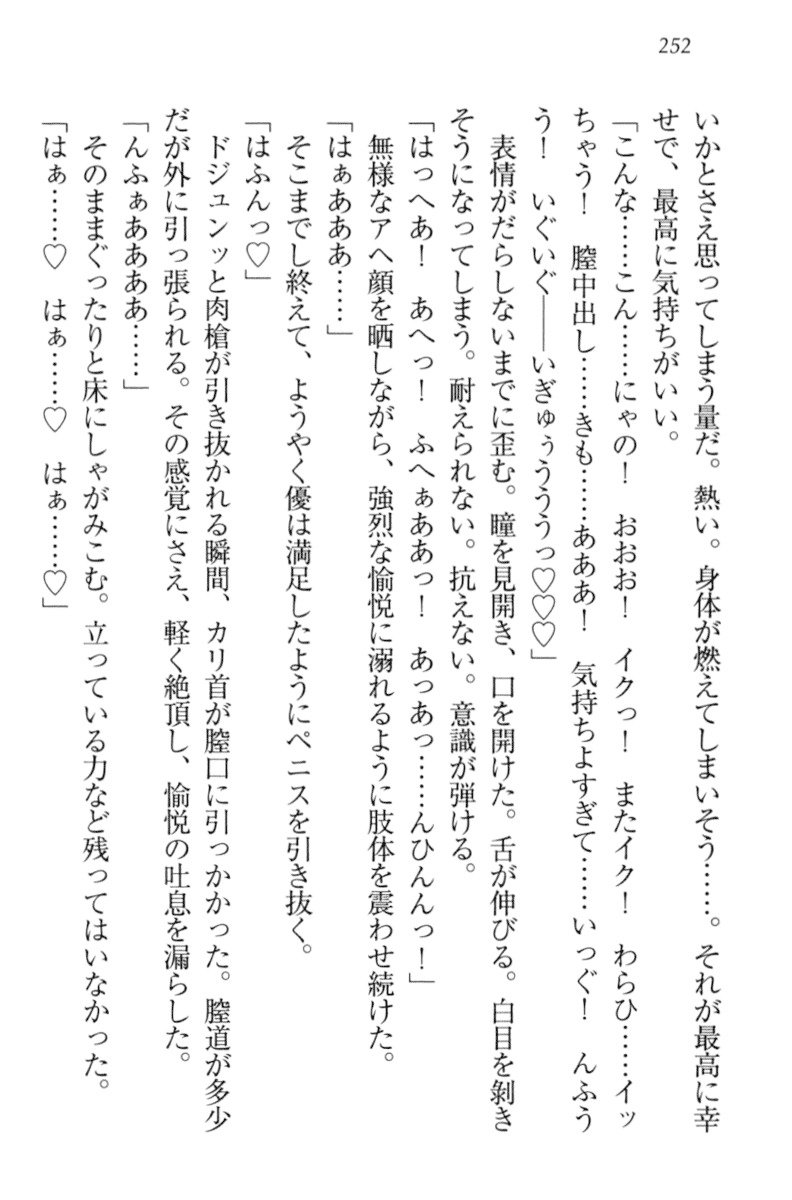 252
いかとさえ思ってしまう量だ。熱い。身体が燃えてしまいそう……。それが最高に幸
せで、最高に気持ちがいい。
「こんな……こん……にゃの！　おおお！　イクっ！　またイク！　わらひ……イッ
ちゃう！　膣中出し……きも……あああ！　気持ちよすぎて……いっぐ！　んふう
う！　いぐいぐ――いぎゅぅうううっ♡♡♡」
　表情がだらしないまでに歪む。瞳を見開き、口を開けた。舌が伸びる。白目を剝き
そうになってしまう。耐えられない。抗えない。意識が弾ける。
「はっへあ！　あへっ！　ふへぁああっ！　あっあっ……んひんんっ！」
　無様なアヘ顔を晒しながら、強烈な愉悦に溺れるように肢体を震わせ続けた。
「はぁあああ……」
　そこまでし終えて、ようやく優は満足したようにペニスを引き抜く。
「はふんっ♡」
　ドジュンッと肉槍が引き抜かれる瞬間、カリ首が膣口に引っかかった。膣道が多少
だが外に引っ張られる。その感覚にさえ、軽く絶頂し、愉悦の吐息を漏らした。
「んふぁああああ……」
　そのままぐったりと床にしゃがみこむ。立っている力など残ってはいなかった。
「はぁ……♡　はぁ……♡　はぁ……♡」